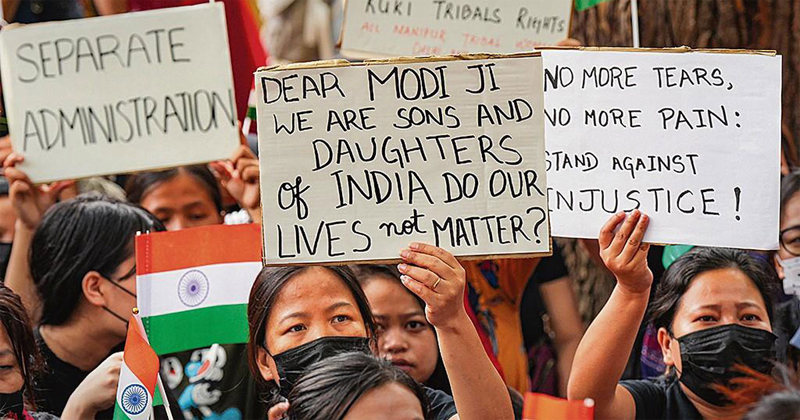 SEPARATE
ADMINISTRATION
KUKI TRIBALS RIGHTS
ALL MANIPUR TRIBAL
DEAR MODI JI
WE ARE SONS AND
DAUGHTERS
of INDIA DO OUR
LIVES not MATTER?
NO MORE TEARS,
NO MORE PAIN:
STAND AGAINST
INJUSTICE!